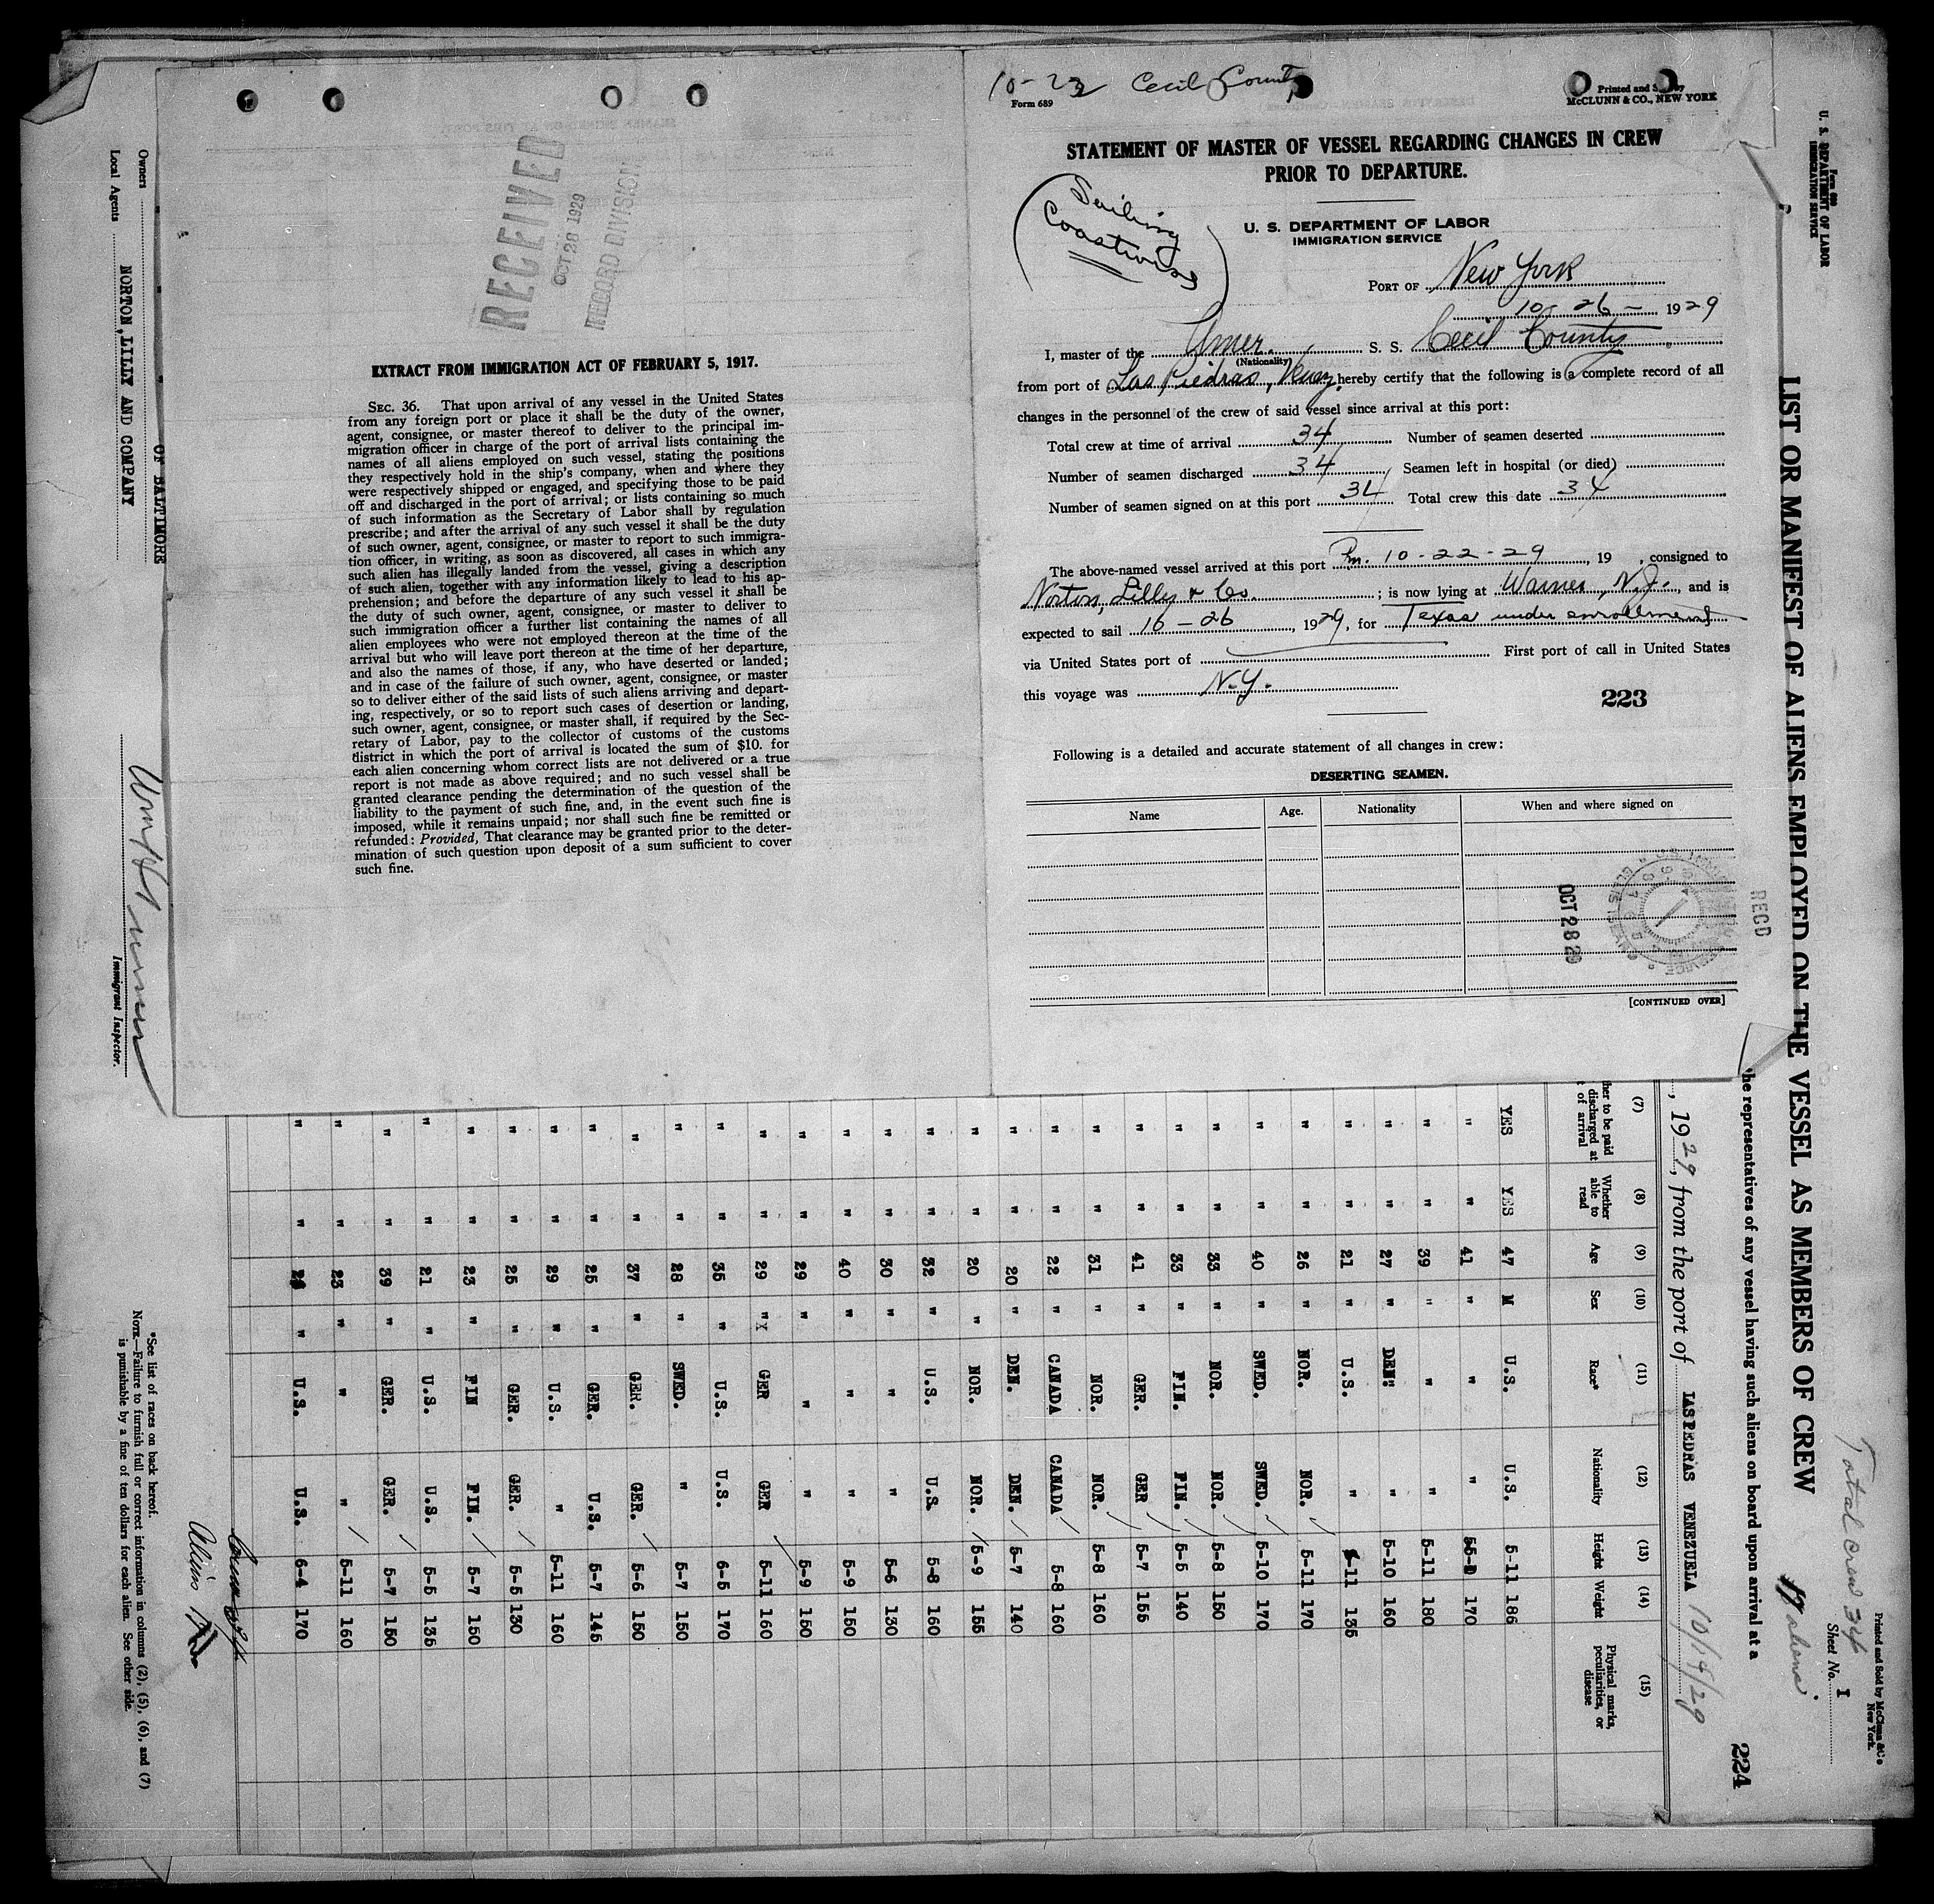 RECEIVED
OCT 28 1929
RECORD DIVISION
EXTRACT FROM IMMIGRATION ACT OF FEBRUARY 5, 1917.
SEC. 36. That upon arrival of any vessel in the United States
from any foreign port or place it shall be the duty of the owner,
agent, consignee, or master thereof to deliver to the principal im-
migration officer in charge of the port of arrival lists containing the
names of all aliens employed on such vessel, stating the positions
they respectively hold in the ship's company, when and where they
were respectively shipped or engaged, and specifying those to be paid
off and discharged in the port of arrival; or lists containing so much
of such information as the Secretary of Labor shall by regulation
prescribe; and after the arrival of any such vessel it shall be the duty
of such owner, agent, consignee, or master to report to such immigra-
tion officer, in writing, as soon as discovered, all cases in which any
such alien has illegally landed from the vessel, giving a description
of such alien, together with any information likely to lead to his ap-
prehension; and before the departure of any such vessel it shall be
the duty of such owner, agent, consignee, or master to deliver to
such immigration officer a further list containing the names of all
alien employees who were not employed thereon at the time of the
arrival but who will leave port thereon at the time of her departure,
and also the names of those, if any, who have deserted or landed;
and in case of the failure of such owner, agent, consignee, or master
so to deliver either of the said lists of such aliens arriving and depart-
ing, respectively, or so to report such cases of desertion or landing,
such owner, agent, consignee, or master shall, if required by the Sec-
retary of Labor, pay to the collector of customs of the customs
district in which the port of arrival is located the sum of $10. for
each alien concerning whom correct lists are not delivered or a true
report is not made as above required; and no such vessel shall be
granted clearance pending the determination of the question of the
liability to the payment of such fine, and, in the event such fine is
imposed, while it remains unpaid; nor shall such fine be remitted or
refunded: Provided, That clearance may be granted prior to the deter-
mination of such question upon deposit of a sum sufficient to cover
such fine.
10-23 Cecil County
Form 689
Printed and
McCLUNN & CO., NEW YORK
STATEMENT OF MASTER OF VESSEL REGARDING CHANGES IN CREW
PRIOR TO DEPARTURE.
Sailing
Coastwise
U. S. DEPARTMENT OF LABOR
IMMIGRATION SERVICE
PORT OF New York
10-26- 1929
I, master of the Amer. S. S. Cecil County
(Nationality)
from port of Las Piedras, Venz. hereby certify that the following is a complete record of all
changes in the personnel of the crew of said vessel since arrival at this port:
Total crew at time of arrival 34 Number of seamen deserted
Number of seamen discharged 34 Seamen left in hospital (or died)
Number of seamen signed on at this port 34 Total crew this date 34
The above-named vessel arrived at this port Pm. 10-22-29, 19 , consigned to
Norton, Lilly & Co. ; is now lying at Warners, N.J., and is
expected to sail 10-26, 1929, for Texas under enrollment
via United States port of First port of call in United States
this voyage was N.Y.
223
Following is a detailed and accurate statement of all changes in crew:
DESERTING SEAMEN.
Name Age. Nationality When and where signed on
OCT 28 29
RECD
[CONTINUED OVER]
U. S. DEPARTMENT OF LABOR
IMMIGRATION SERVICE
LIST OR MANIFEST OF ALIENS EMPLOYED ON THE VESSEL AS MEMBERS OF CREW
Total crew 34
17 aliens
Printed and Sold by McClunn & Co
New York.
Sheet No. I
224
the representatives of any vessel having such aliens on board upon arrival at a
, 1929, from the port of LAS PEDRAS VENEZUELA 10/14/29
(7) (8) (9) (10) (11) (12) (13) (14) (15)
her to be paid discharged at of arrival Whether able to read Age Sex Race* Nationality Height Weight Physical marks, peculiarities, or disease
YES YES 47 M U.S. U.S. 5-11 186
" " 41 " " " 55-D 170
" " 39 " " " 5-11 180
" " 27 " DEN" " 5-10 160
" " 21 " U.S. " 5-11 135
" " 26 " NOR. NOR. 5-11 170
" " 40 " SWED. SWED. 5-10 170
" " 33 " NOR. NOR. 5-8 150
" " 33 " FIN. FIN. 5-5 140
" " 41 " GER. GER 5-7 155
" " 31 " NOR. NOR. 5-8 160
" " 22 " CANADA CANADA 5-8 160
" " 20 " DEN. DEN. 5-7 140
" " 20 " NOR. NOR. 5-9 155
" " 32 " U.S. U.S. 5-8 160
" " 30 " " " 5-6 130
" " 40 " " " 5-9 150
" " 29 " " " 5-9 150
" " 29 "X GER GER 5-11 160
" " 35 " U.S. U.S. 6-5 170
" " 28 " SWED. " 5-7 150
" " 37 " GER. GER. 5-6 150
" " 25 " GER. U.S. 5-7 145
" " 29 " U.S. " 5-11 160
" " 25 " GER. GER. 5-5 130
" " 23 " FIN FIN. 5-7 150
" " 21 " U.S. U.S. 5-5 135
" " 39 " GER. GER. 5-7 150
" " 23 " " " 5-11 160
" " " U.S. U.S. 6-4 170
Aliens
*See list of races on back hereof.
NOTE.—Failure to furnish full or correct information in columns (2), (5), (6), and (7)
is punishable by a fine of ten dollars for each alien. See other side.
OF BALTIMORE
Owners
Local Agents NORTON,LILLY AND COMPANY
Immigrant Inspector.